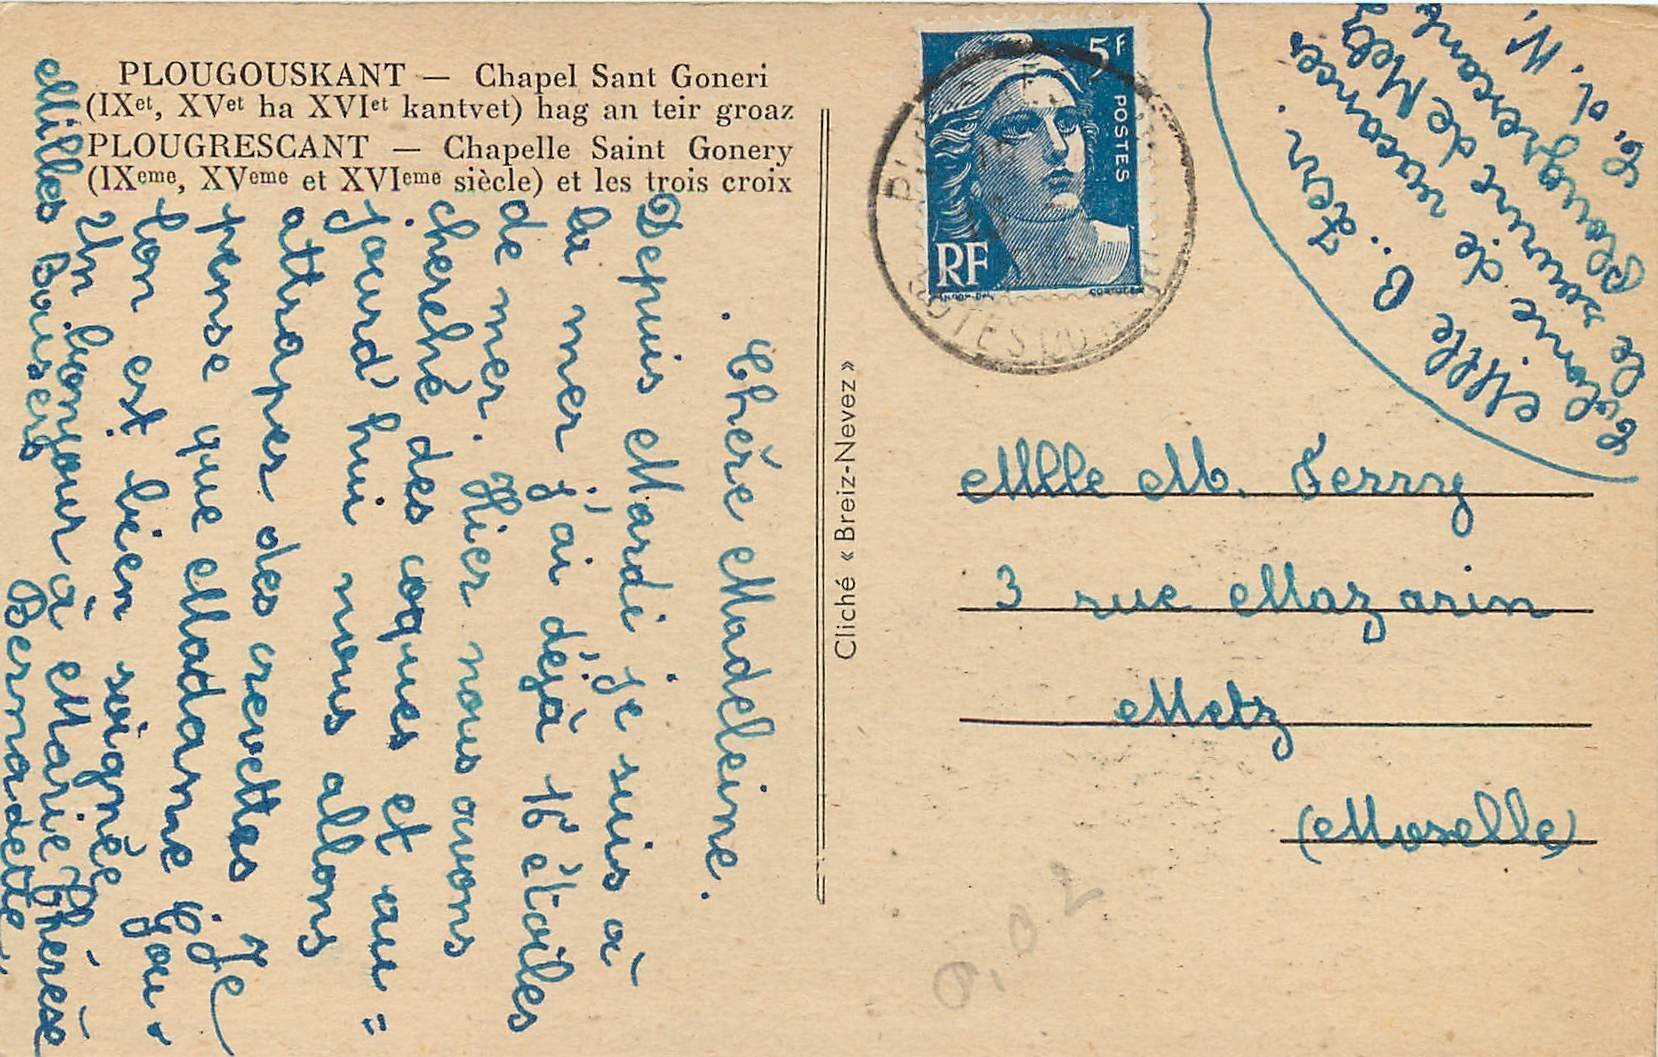 PLOUGOUSKANT — Chapel Sant Goneri
(IXet, XVet ha XVIet kantvet) hag an teir groaz
PLOUGRESCANT — Chapelle Saint Gonery
(IXeme, XVeme et XVIeme siècle) et les trois croix
Chère Madeleine.
Depuis Mardi je suis à
la mer j'ai déjà 16 étoiles
de mer. Hier nous avons
cherché des coques et au=
jourd'hui nous allons
attraper des crevettes Je
pense que Madame
l'on est bien soignée
Un bonjour à Marie Thérèse
Milles Bousers
Bernadette
Cliché « Breiz-Nevez »
5F
POSTES
RF
COTES DU
Mlle B.
Colonie de vacances
le sourire de Metz
Plougrescant
C. d. N.
Mlle M. Ferry
3 rue Mazarin
Metz
(Moselle)